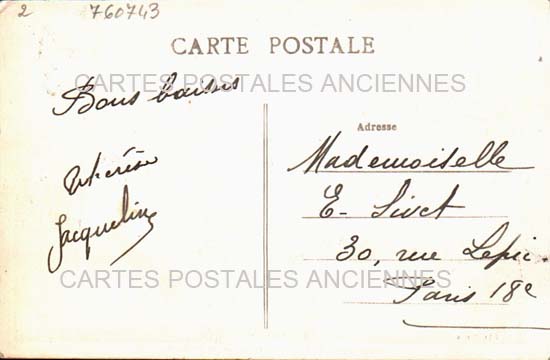 2 760743
CARTE POSTALE
CARTES POSTALES ANCIENNES
Bons baisers
Jacqueline
Adresse
Mademoiselle
E. Sivet
30, rue Lepic
Paris 18e
CARTES POSTALES ANCIENNES